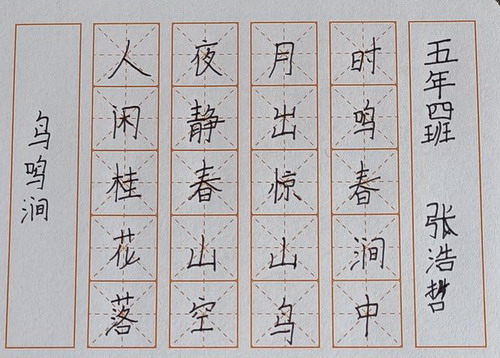 鸟鸣涧
人闲桂花落
夜静春山空
月出惊山鸟
时鸣春涧中
五年四班 张浩哲